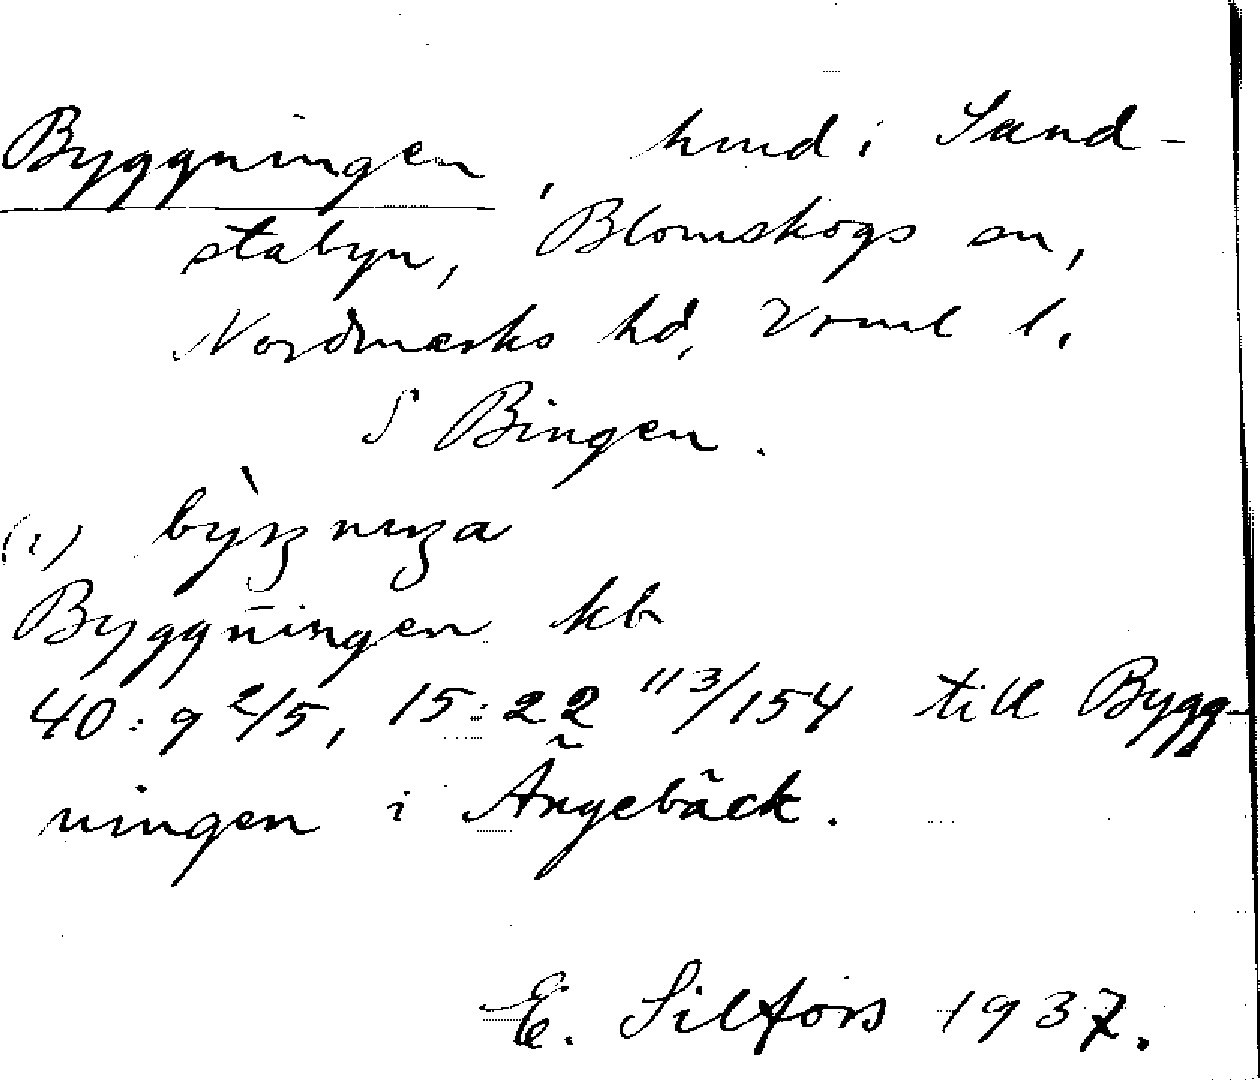 Byggningen, hmd i Sand-
stabyn, Blomskogs sn,
Nordmarks hd, Vrml l.
S Bingen.
(1)
Byggningen kb
40:9 2/5, 15:22 113/154 till Bygg-
ningen i Ängebäck.
E. Silfors 1937.